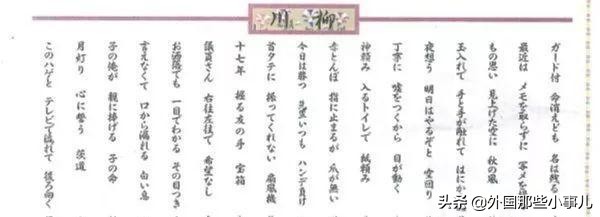 川柳
ガード付 命消えども 名は残る
最近は メモを取らずに 写メを
もの思い 見上げた空に 秋の風
玉入れて 手と手が触れて はにか
夜想う 明日はやるぞと 空回り
丁寧に 嘘をつくから 目が動く
神頼み 入るトイレで 紙頼み
赤とんぼ 指に止まるが 爪が無い
今日は勝つ いつも ハンデ負け
首タテに 振ってくれない 扇風機
十七年 握る友の手 宝箱
議員さん 右往左往で 希望なし
お洒落でも 一目でわかる その目つき
言えなくて 口から漏れる 白い息
子の俺が 親に捧げる 子の命
月灯り 心に誓う 道
このハゲと テレビで流れて 後ろ向く
头条 @外国那些小事儿